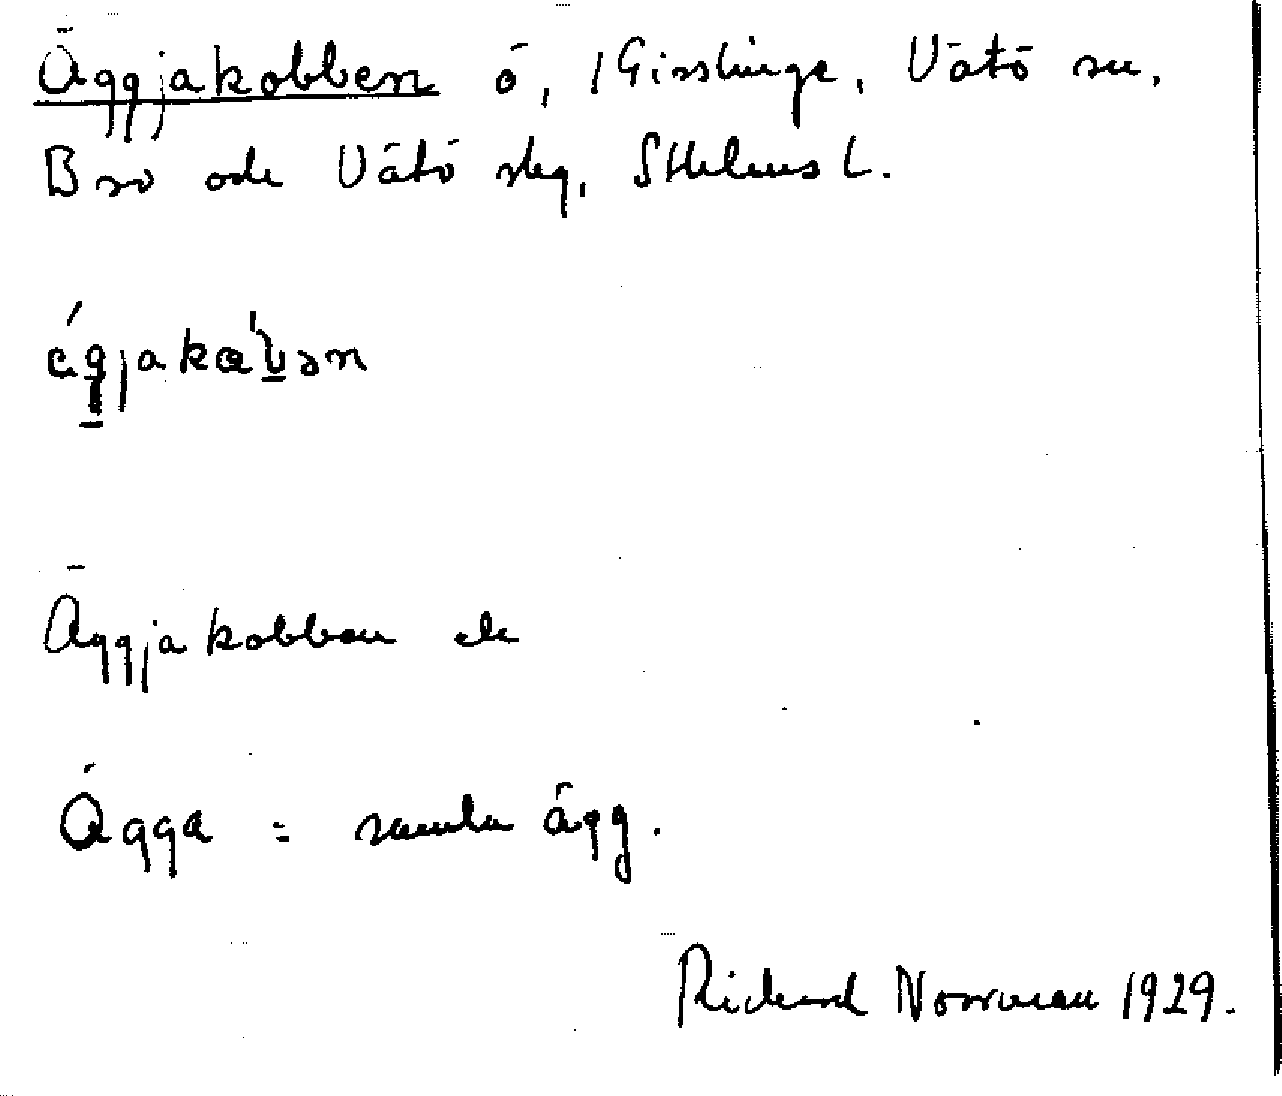 Äggjakobben ö, 1 Gisslinge, Vätö sn,
Bro och Vätö slg, Sthlms L.
Äggjakobben ek
Ägga = samla ägg.
Richard Norrman 1929.